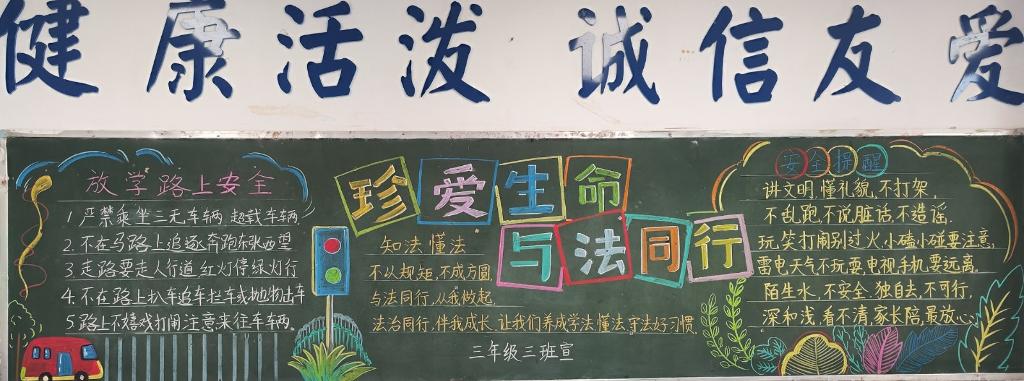 健康活泼 诚信友爱
放学路上安全
1. 严禁乘坐三无车辆 超载车辆
2. 不在马路上追逐奔跑东张西望
3. 走路要走人行道 红灯停绿灯行
4. 不在路上扒车追车拦车或抛物击车
5. 路上不嬉戏打闹注意来往车辆。
珍爱生命
与法同行
知法懂法
不以规矩,不成方圆
与法同行,从我做起.
法治同行,伴我成长,让我们养成学法懂法守法好习惯.
三年级三班宣
安全提醒
讲文明,懂礼貌,不打架.
不乱跑,不说脏话,不造谣.
玩笑打闹别过火,小磕小碰要注意,
雷电天气不玩耍,电视手机要远离.
陌生水,不安全,独自去,不可行.
深和浅,看不清,家长陪,最放心.